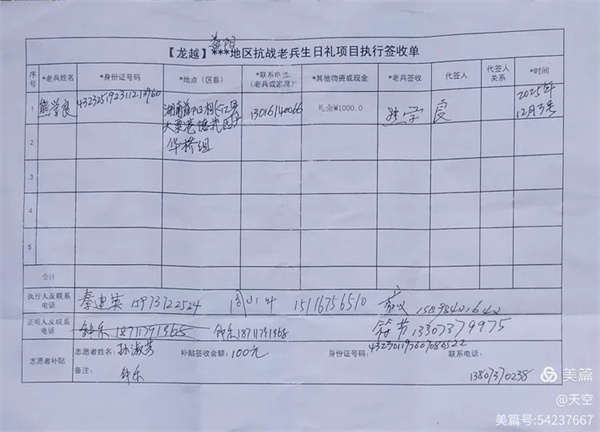 益阳
【龙越】***地区抗战老兵生日礼项目执行签收单
序号 *老兵姓名 *身份证号码 *地点（区县） *联系电话（老兵或家属） *其他物资或现金 *老兵签收 代签人 代签人关系 *时间
1 熊学良 湖南省 13016140066 礼金¥1000.0 熊学良 2025年12月3号
华桥组
2
3
4
5
合计
执行人及联系电话 秦建英 15973722524 15116756510
证明人及联系电话 钟乐18711791868 钟乐18711791868 13307379975
志愿者补贴 志愿者姓名：孙淑芳 补贴签收金额：100元 身份证号码： 联系电话：
备注：钟乐 13807370238
美篇
@天空
美篇号:54237667